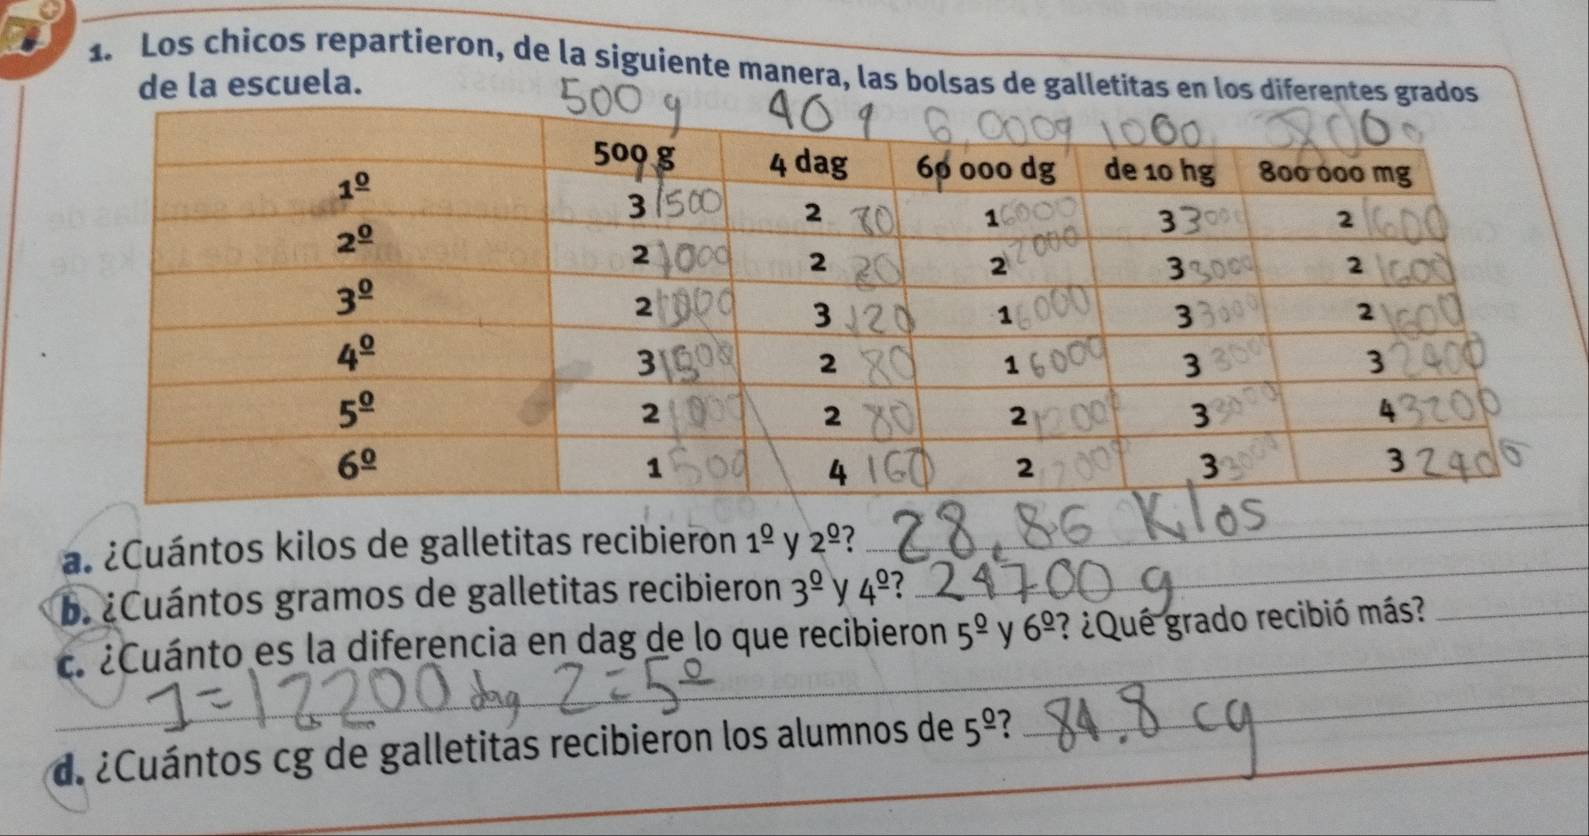 1. Los chicos repartieron, de la siguiente manera, las bolsas de galletitas en los diferentes grados
de la escuela.
500 g 40 g 6,000g 1000
500 g 4 dag 60 000 dg de 10 hg 800 000 mg
1º 3 1500 2 80 1 6000 3 3000 2 1600
2º 2 1000 2 80 2 12000 3 3000 2 1600
3º 2 1000 3 120 1 6000 3 3000 2 1600
4º 3 1500 2 80 1 6000 3 300 3 2400
5º 2 1000 2 80 2 1200 3 3000 4 3200
6º 1 500 4 160 2 12000 3 3000 3 2400
a. ¿Cuántos kilos de galletitas recibieron 1º y 2º? 28,86 Kilos
b. ¿Cuántos gramos de galletitas recibieron 3º y 4º? 24700 g
c. ¿Cuánto es la diferencia en dag de lo que recibieron 5º y 6º? ¿Qué grado recibió más?
1=12200 dag 2=5º
d. ¿Cuántos cg de galletitas recibieron los alumnos de 5º? 84.8 cg